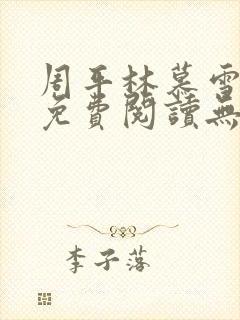 周平林慕雪
免費閱讀無
李子落